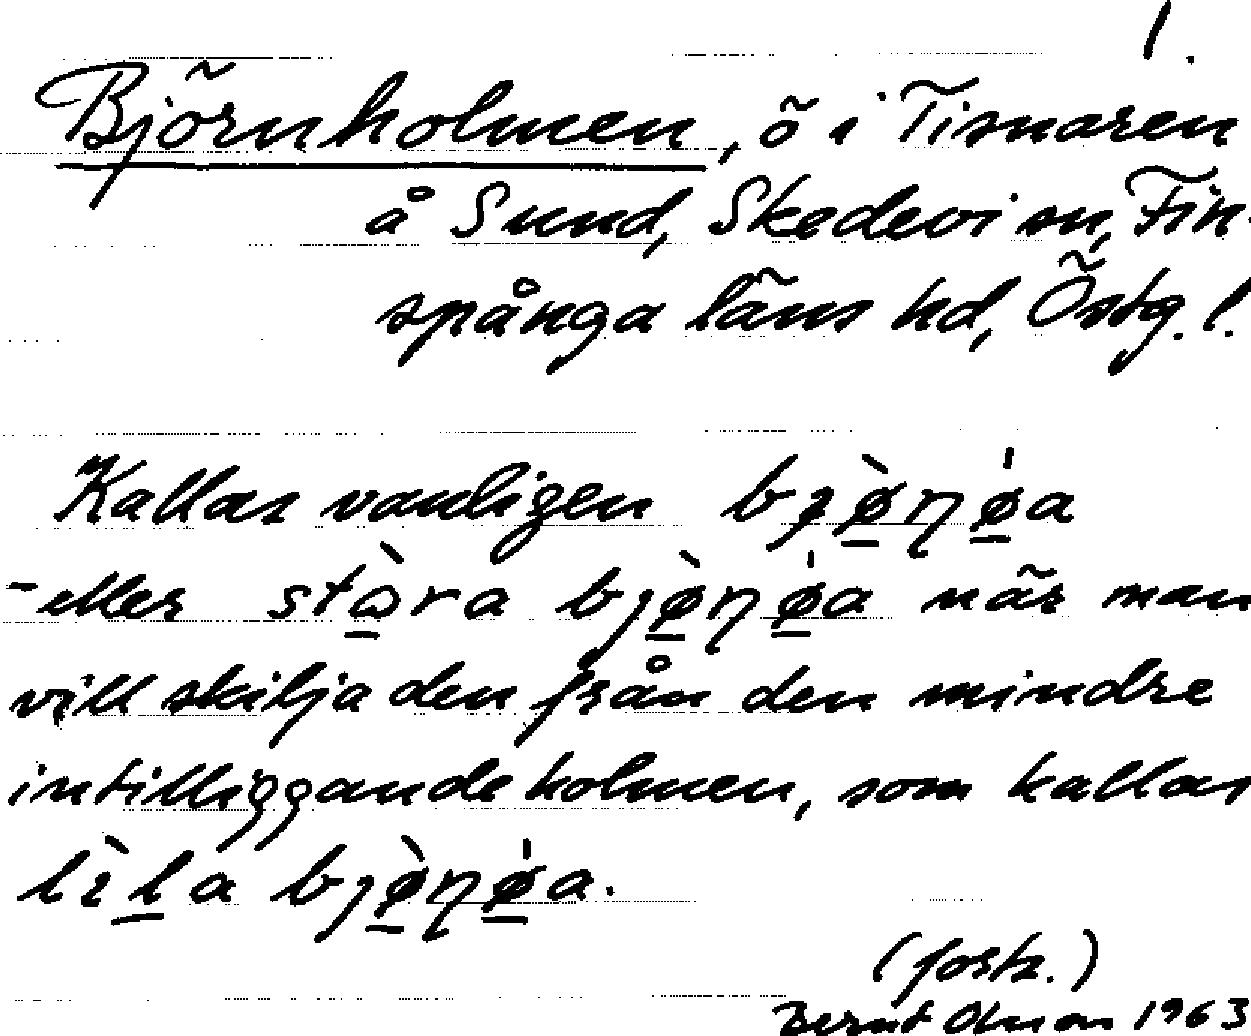 1.
Björnholmen, ö i Tisnaren
å Sund, Skedevi sn, Fin-
spånga läns hd, Östg. l.
Kallas vanligen bjø̲̀ɳǿ̲a
- eller stɷ̲̀ra bjø̲̀ɳǿ̲a när man
vill skilja den från den mindre
intilliggande holmen, som kallas
lìl̲a bjø̲̀ɳǿ̲a.
(forts.)
Bernt Olsson 1963